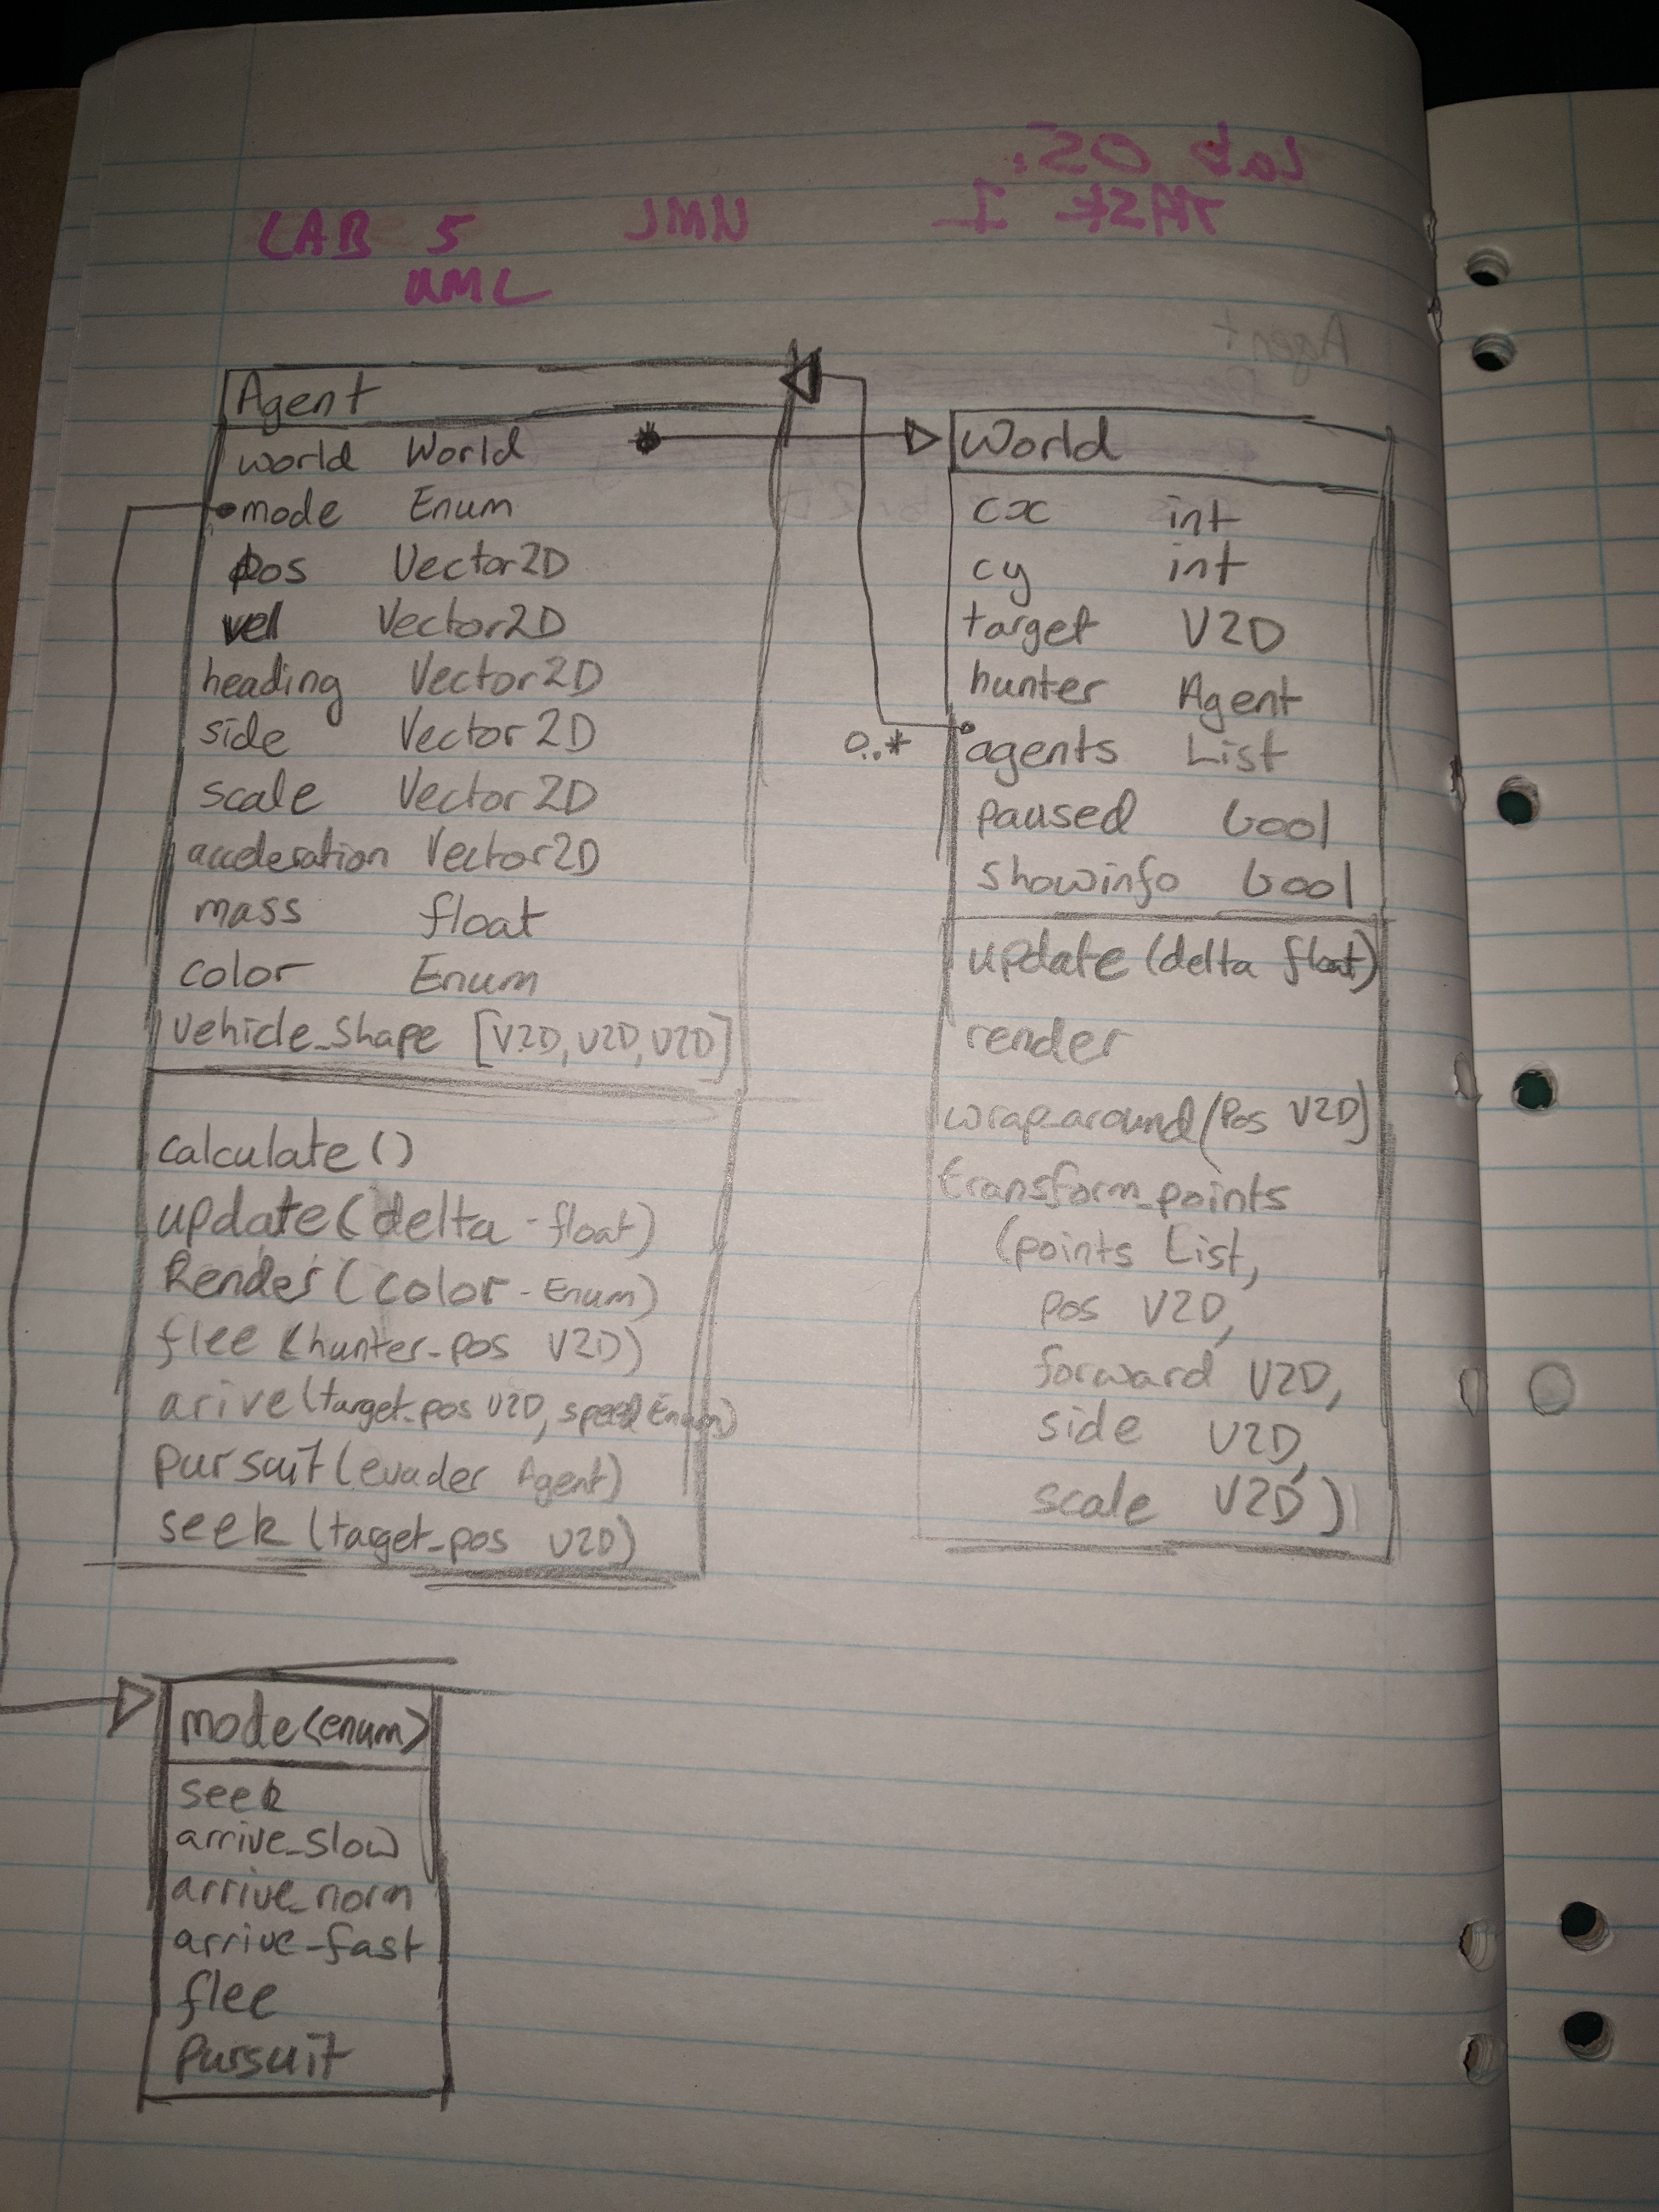 LAB 5 JMN
UML
Lab 05:
TASK 1
Agent
Agent
world World
mode Enum
pos Vector2D
vel Vector2D
heading Vector2D
side Vector2D
scale Vector2D
acceleration Vector2D
mass float
color Enum
vehicle_shape [V2D, V2D, V2D]
calculate()
update(delta - float)
Render(color - Enum)
flee (hunter_pos V2D)
arive(target_pos V2D, speed Enum)
pursuit(evader Agent)
seek (target_pos V2D)
1
*
0..*
World
cx int
cy int
target V2D
hunter Agent
agents List
paused bool
showinfo bool
update(delta float)
render
wrap_around(Pos V2D)
transform_points
(points List,
pos V2D,
forward V2D,
side V2D,
scale V2D)
mode<enum>
seek
arrive_slow
arrive_norm
arrive_fast
flee
Pursuit